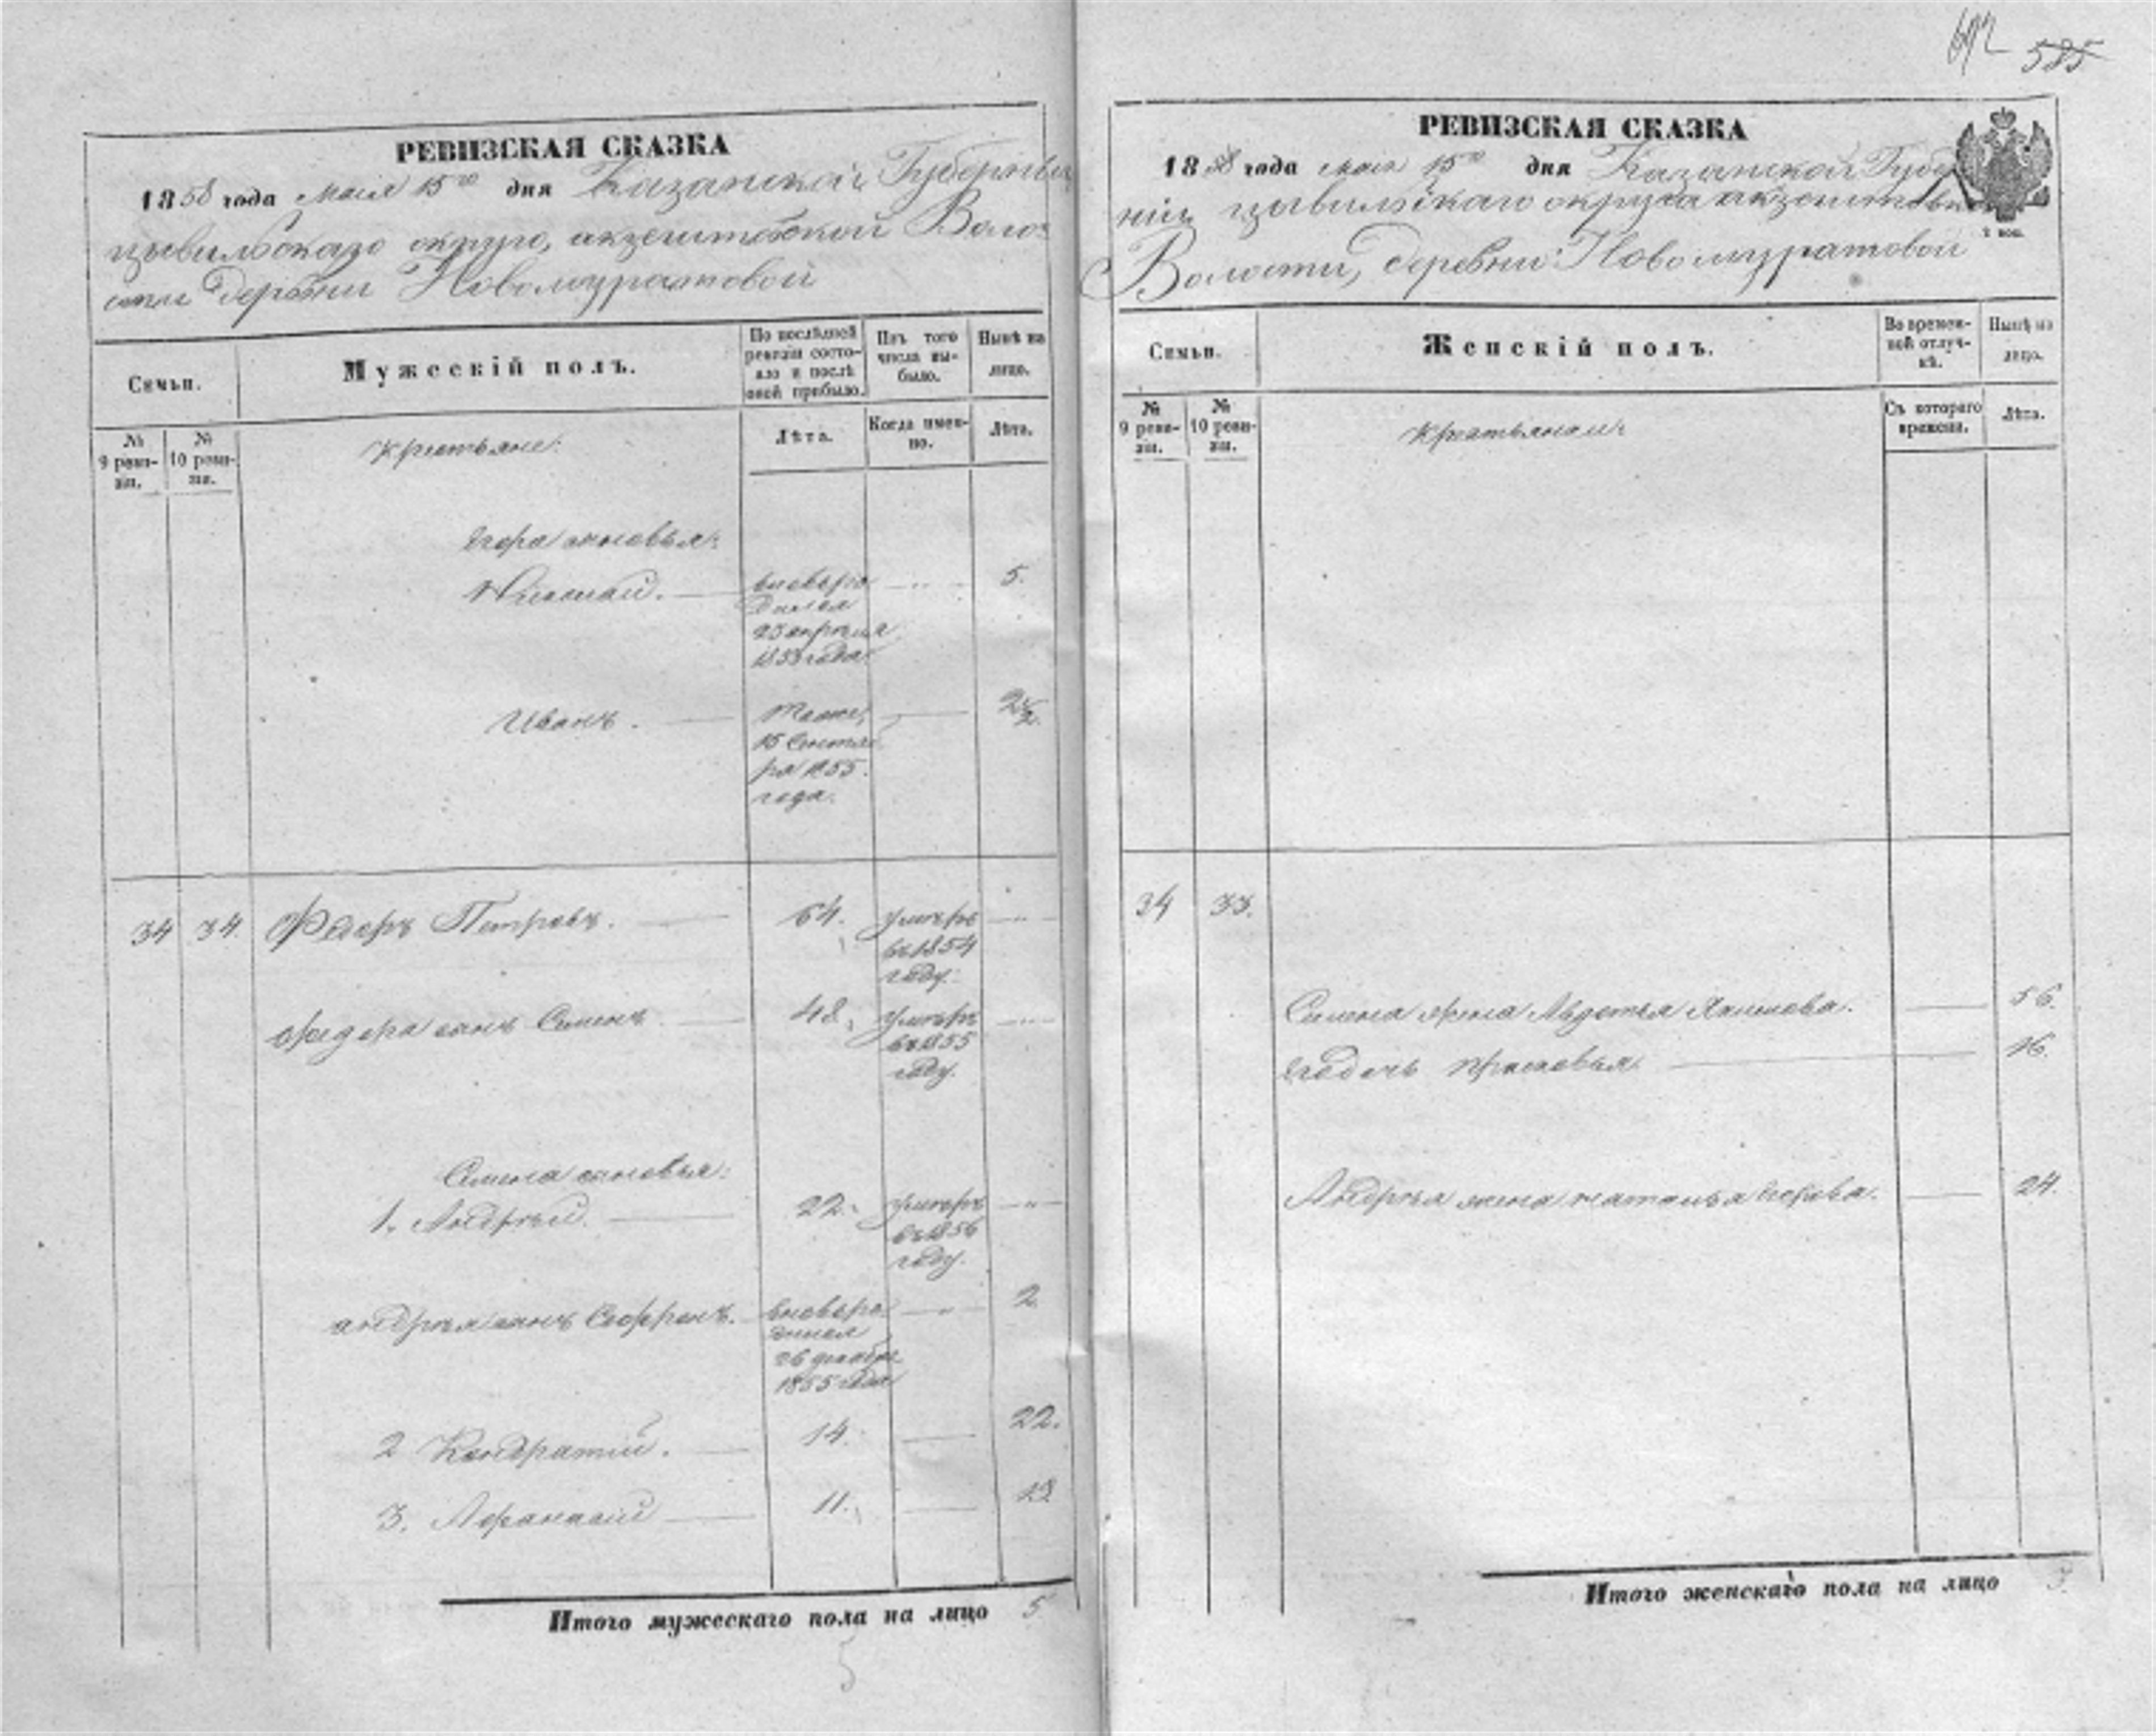 612 585
РЕВИЗСКАЯ СКАЗКА
1858 года Маія 15го дня Казанской Губерніи
цывильскаго округа, акзегитовской Воло-
сти деревни Новомуратовой
Семьи.
Мужескій полъ.
По послѣдней ревизіи состояло и послѣ оной прибыло.
Изъ того числа выбыло.
Нынѣ на лицо.
№ 9 ревизіи.
№ 10 ревизіи.
Лѣта.
Когда именно.
Лѣта.
Крестьяне:
Егора сыновья:
Николай. вновьро- 5.
дился
23 апрѣля
1853 года.
Иванъ. тоже, 2½.
15 Сентяб-
ря 1855
года.
34 34. Федоръ Петровъ. 64. умеръ
въ 1854
году.
Федора сынъ Семенъ 48. умеръ
въ 1855
году.
Семена сыновья:
1. Андрѣй. 22. умеръ
въ 1856
году.
андрѣя сынъ Софронъ. вновьро- 2
дился
26 декабря
1855 года
2 Кондратій. 14. 22.
3. Афанасій 11. 19.
Итого мужескаго пола на лицо 5
5
РЕВИЗСКАЯ СКАЗКА
1858 года Маія 15го дня Казанской Губер
ніи цывильскаго округа акзегитовской
Волости, деревни Новомуратовой
Семьи.
Женскій полъ.
Во временной отлучкѣ.
Нынѣ на лицо.
№ 9 ревизіи.
№ 10 ревизіи.
Съ котораго времени.
Лѣта.
34 33.
Семена жена Авдотья Якимова. 56.
Егодочь Прасковья 16.
Андрѣя жена наталья Егорова. 24.
Итого женскаго пола на лицо 3.